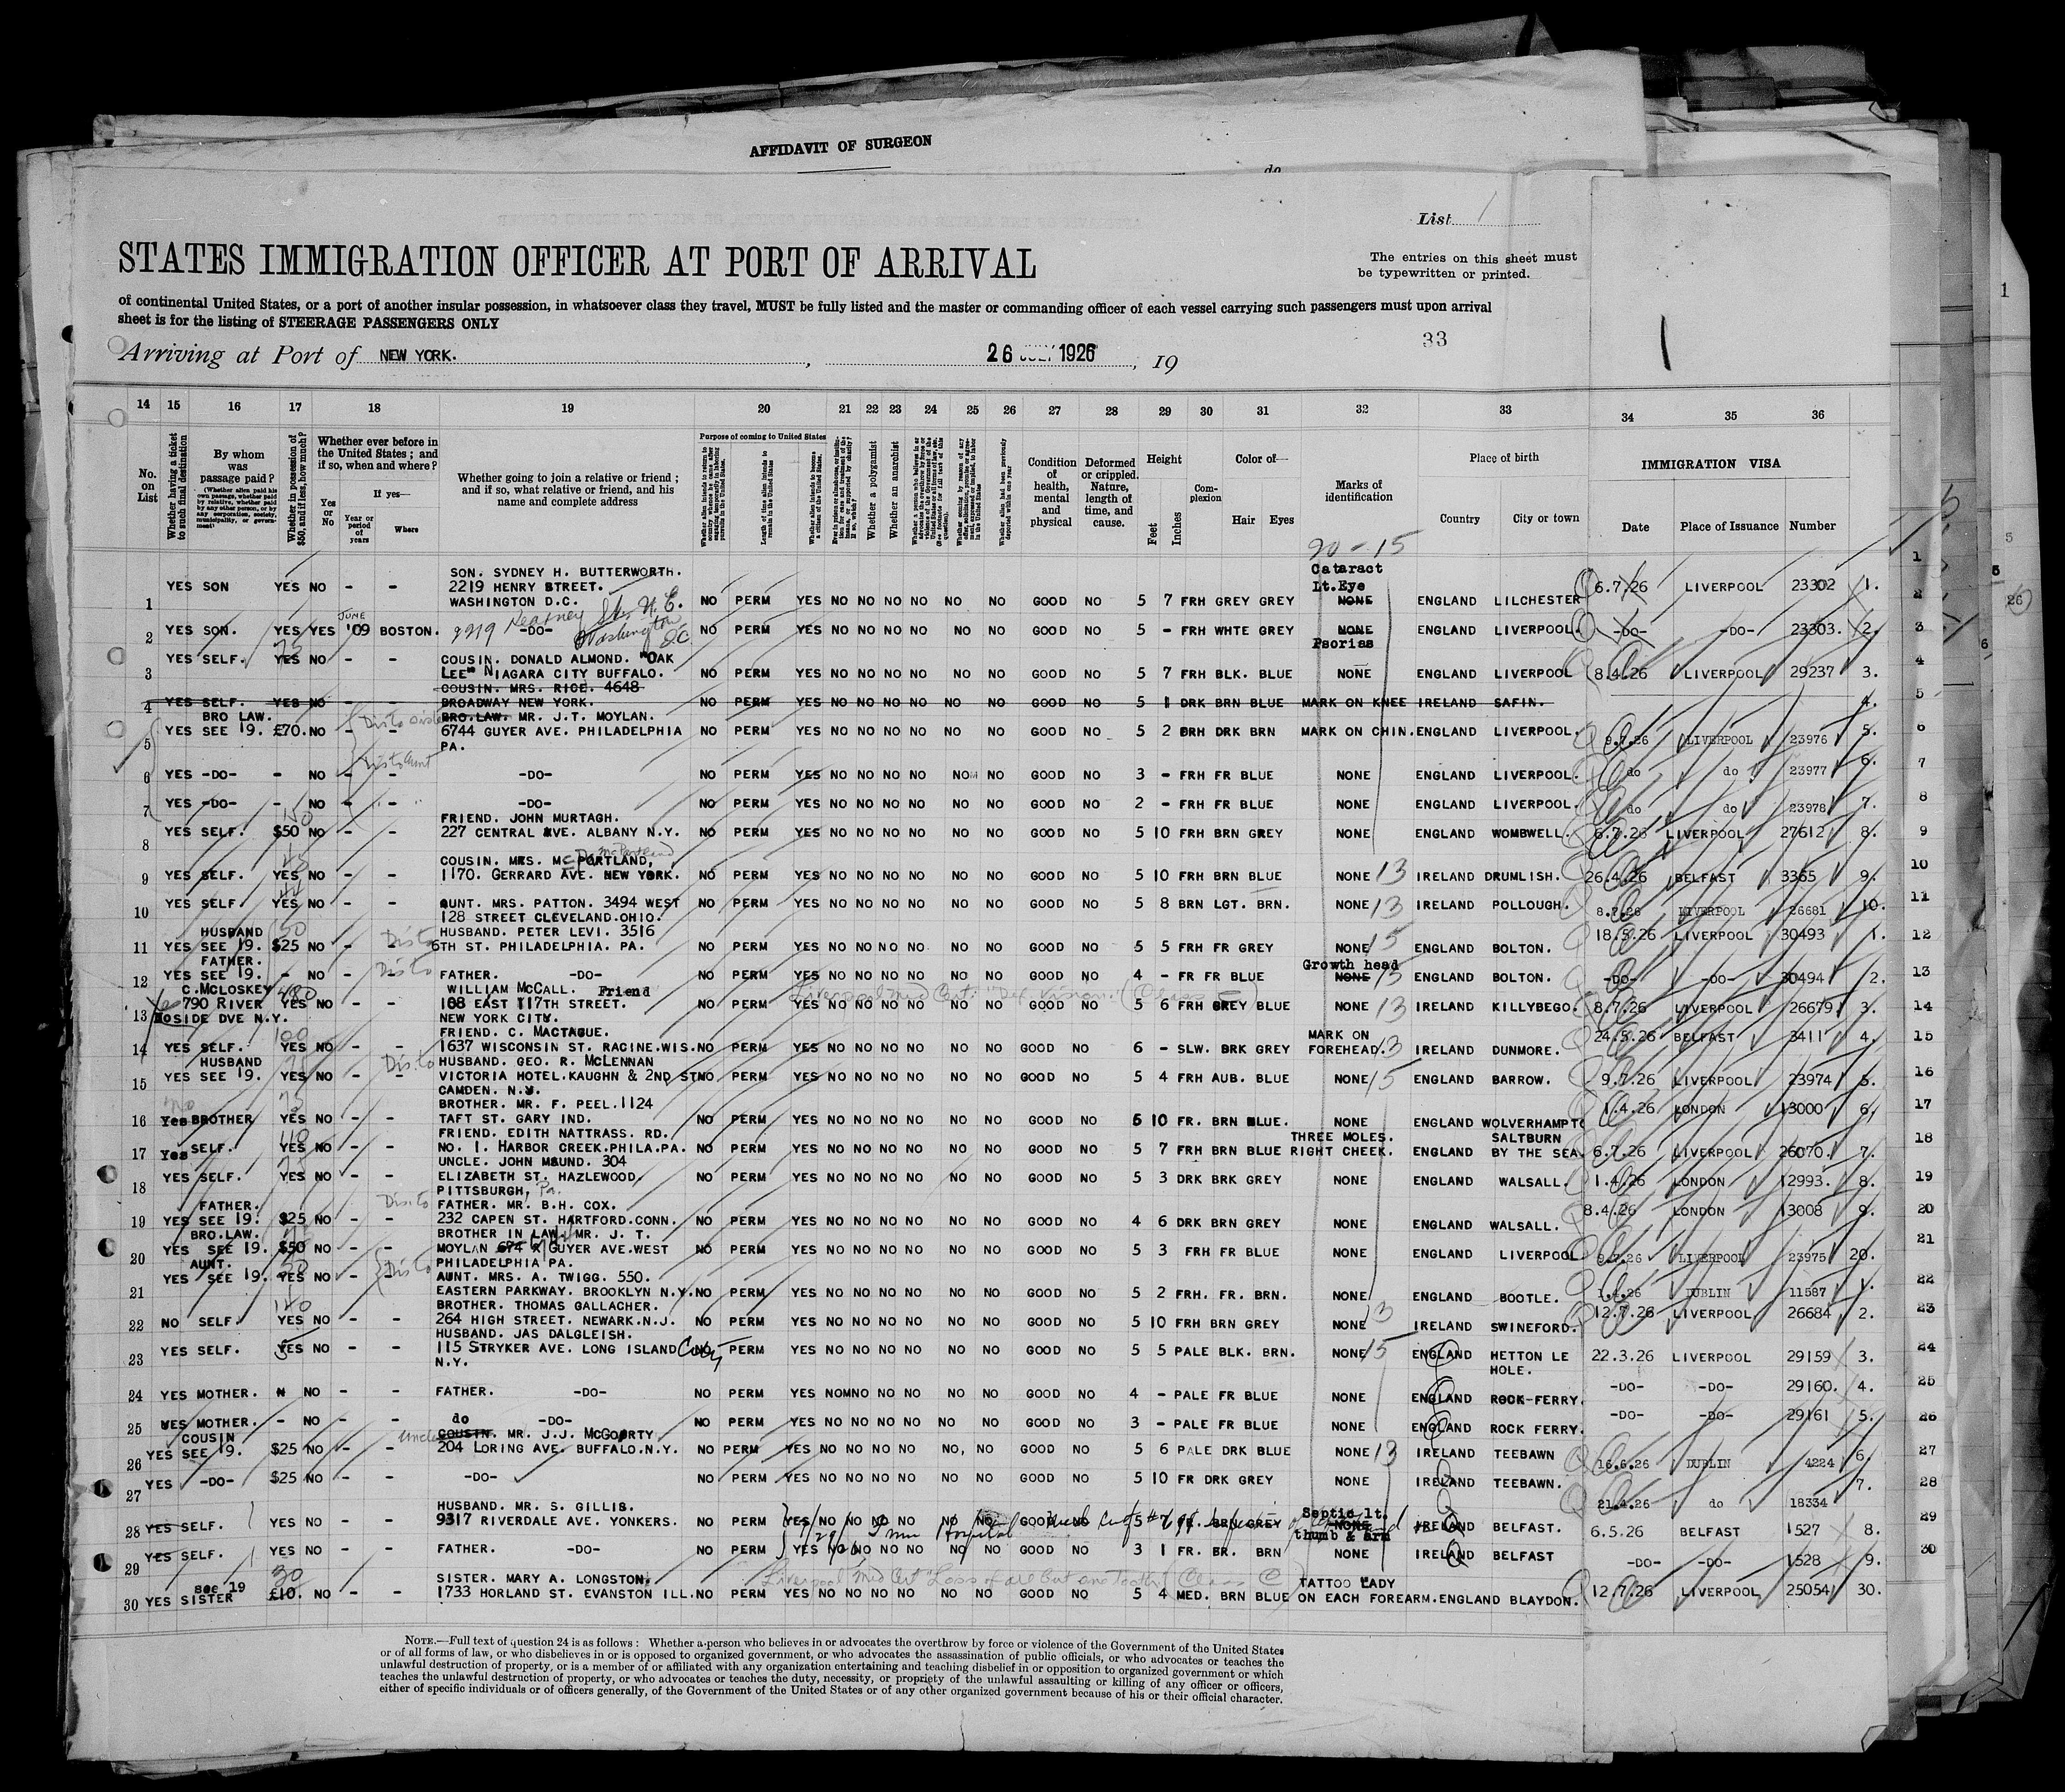 AFFIDAVIT OF SURGEON
do
List 1
STATES IMMIGRATION OFFICER AT PORT OF ARRIVAL
The entries on this sheet must
be typewritten or printed.
of continental United States, or a port of another insular possession, in whatsoever class they travel, MUST be fully listed and the master or commanding officer of each vessel carrying such passengers must upon arrival
sheet is for the listing of STEERAGE PASSENGERS ONLY
33
Arriving at Port of NEW YORK. , 26 JULY 1926 , 19
14 15 16 17 18 19 20 21 22 23 24 25 26 27 28 29 30 31 32 33 34 35 36
No. on List
Whether having a ticket to such final destination
By whom was passage paid?
(Whether alien paid his own passage, whether paid by relative, whether paid by any other person, or by any corporation, society, municipality, or government)
Whether in possession of $50, and if less, how much?
Whether ever before in the United States; and if so, when and where?
Yes or No
If yes—
Year or period of years
Where
Whether going to join a relative or friend; and if so, what relative or friend, and his name and complete address
Purpose of coming to United States
Length of time alien intends to remain in the United States
Whether alien intends to become a citizen of the United States.
Whether a polygamist
Whether an anarchist
Condition of health, mental and physical
Deformed or crippled. Nature, length of time, and cause.
Height
Feet Inches
Complexion
Color of—
Hair Eyes
Marks of identification
Place of birth
Country City or town
IMMIGRATION VISA
Date Place of Issuance Number
20-15
SON. SYDNEY H. BUTTERWORTH. Cataract
YES SON YES NO - - 2219 HENRY STREET. Lt.Eye 6.7.26 LIVERPOOL 23302 1.
1 WASHINGTON D.C. NO PERM YES NO NO NO NO NO NO GOOD NO 5 7 FRH GREY GREY NONE ENGLAND LILCHESTER
JUNE
2219 Kearney Str N.E. Washington DC
2 YES SON. YES YES '09 BOSTON. -DO- NO PERM YES NO NO NO NO NO NO GOOD NO 5 - FRH WHTE GREY NONE ENGLAND LIVERPOOL. -DO- -DO- 23303. 2.
75 Psoriss
YES SELF. YES NO - - COUSIN. DONALD ALMOND. "OAK
3 LEE" NIAGARA CITY BUFFALO. NO PERM YES NO NO NO NO NO NO GOOD NO 5 7 FRH BLK. BLUE NONE ENGLAND LIVERPOOL 8.4.26 LIVERPOOL 29237 3.
COUSIN. MRS. RICE. 4648
4 YES SELF. YES NO BROADWAY NEW YORK. NO PERM YES NO NO NO NO NO NO GOOD NO 5 1 DRK BRN BLUE MARK ON KNEE IRELAND SAFIN. 4.
BRO LAW. BRO.LAW. MR. J.T. MOYLAN.
5 YES SEE 19. £70. NO 6744 GUYER AVE. PHILADELPHIA NO PERM YES NO NO NO NO NO NO GOOD NO 5 2 FRH DRK BRN MARK ON CHIN. ENGLAND LIVERPOOL. 9.7.26 LIVERPOOL 23976 5.
PA.
6 YES -DO- - NO - - -DO- NO PERM YES NO NO NO NO NO NO GOOD NO 3 - FRH FR BLUE NONE ENGLAND LIVERPOOL. do do 23977 6.
7 YES -DO- - NO - - -DO- NO PERM YES NO NO NO NO NO NO GOOD NO 2 - FRH FR BLUE NONE ENGLAND LIVERPOOL. do do 23978 7.
FRIEND. JOHN MURTAGH.
8 YES SELF. $50 NO - - 227 CENTRAL AVE. ALBANY N.Y. NO PERM YES NO NO NO NO NO NO GOOD NO 5 10 FRH BRN GREY NONE ENGLAND WOMBWELL. 6.7.26 LIVERPOOL 27612 8.
COUSIN. MRS. MCPORTLAND, McPartland
9 YES SELF. YES NO - - 1170. GERRARD AVE. NEW YORK. NO PERM YES NO NO NO NO NO NO GOOD NO 5 10 FRH BRN BLUE NONE 13 IRELAND DRUMLISH. 26.4.26 BELFAST 3365 9.
10 YES SELF YES NO - - AUNT. MRS. PATTON. 3494 WEST NO PERM YES NO NO NO NO NO NO GOOD NO 5 8 BRN LGT. BRN. NONE 13 IRELAND POLLOUGH. 8.7.26 LIVERPOOL 26681 10.
128 STREET CLEVELAND.OHIO.
HUSBAND 50 HUSBAND. PETER LEVI. 3516
11 YES SEE 19. $25 NO - - 6TH ST. PHILADELPHIA. PA. NO PERM YES NO NO NO NO NO NO GOOD NO 5 5 FRH FR GREY NONE 15 ENGLAND BOLTON. 18.5.26 LIVERPOOL 30493 1.
FATHER. Growth head
12 YES SEE 19. - NO - FATHER. -DO- NO PERM YES NO NO NO NO NO NO GOOD NO 4 - FR FR BLUE NONE 15 ENGLAND BOLTON. -DO- -DO- 30494 2.
C.MCLOSKEY WILLIAM MCCALL. Friend Liverpool Med Cert: "Def Vision."
790 RIVER YES NO - - 108 EAST 117TH STREET. NO PERM YES NO NO NO NO NO NO GOOD NO 5 6 FRH GREY BLUE NONE 13 IRELAND KILLYBEGO. 8.7.26 LIVERPOOL 26679. 3.
13 SIDE DVE N.Y. NEW YORK CITY.
100 FRIEND. C. MACTAGUE. MARK ON
14 YES SELF. YES NO - - 1637 WISCONSIN ST. RACINE.WIS. NO PERM YES NO NO NO NO NO NO GOOD NO 6 - SLW. DRK GREY FOREHEAD. 13 IRELAND DUNMORE. 24.5.26 BELFAST 3411 4.
HUSBAND HUSBAND. GEO. R. MCLENNAN
15 YES SEE 19. YES NO - - VICTORIA HOTEL.KAUGHN & 2ND ST NO PERM YES NO NO NO NO NO NO GOOD NO 5 4 FRH AUB. BLUE NONE 15 ENGLAND BARROW. 9.7.26 LIVERPOOL 23974 5.
CAMDEN. N.J.
No 75 BROTHER. MR. F. PEEL.1124
16 Yes BROTHER YES NO - - TAFT ST. GARY IND. NO PERM YES NO NO NO NO NO NO GOOD NO 5 10 FR. BRN BLUE. NONE ENGLAND WOLVERHAMPTO 1.4.26 LONDON 13000 6.
110 FRIEND. EDITH NATTRASS. RD. THREE MOLES. SALTBURN
17 Yes SELF. YES NO - - NO. 1. HARBOR CREEK.PHILA.PA. NO PERM YES NO NO NO NO NO NO GOOD NO 5 7 FRH BRN BLUE RIGHT CHEEK. ENGLAND BY THE SEA. 6.7.26 LIVERPOOL 26070. 7.
UNCLE. JOHN MAUND. 304
18 YES SELF. YES NO - - ELIZABETH ST. HAZLEWOOD. NO PERM YES NO NO NO NO NO NO GOOD NO 5 3 DRK BRK GREY NONE ENGLAND WALSALL. 1.4.26 LONDON 12993. 8.
PITTSBURGH, Pa.
FATHER. FATHER. MR. B.H. COX.
19 YES SEE 19. $25 NO - - 232 CAPEN ST. HARTFORD.CONN. NO PERM YES NO NO NO NO NO NO GOOD NO 4 6 DRK BRN GREY NONE ENGLAND WALSALL. 8.4.26 LONDON 13008 9.
BRO.LAW. BROTHER IN LAW. MR. J. T.
20 YES SEE 19. $50 NO - - MOYLAN 674 GUYER AVE.WEST NO PERM YES NO NO NO NO NO NO GOOD NO 5 3 FRH FR BLUE NONE ENGLAND LIVERPOOL 9.7.26 LIVERPOOL 23975 20.
PHILADELPHIA PA.
AUNT. 50 AUNT. MRS. A. TWIGG. 550.
21 YES SEE 19. YES NO - - EASTERN PARKWAY. BROOKLYN N.Y. NO PERM YES NO NO NO NO NO NO GOOD NO 5 2 FRH. FR. BRN. NONE ENGLAND BOOTLE. 1.4.26 DUBLIN 11587 1.
140 BROTHER. THOMAS GALLACHER.
22 NO SELF. YES NO - - 264 HIGH STREET. NEWARK.N.J. NO PERM YES NO NO NO NO NO NO GOOD NO 5 10 FRH BRN GREY NONE 13 IRELAND SWINEFORD. 12.7.26 LIVERPOOL 26684 2.
HUSBAND. JAS DALGLEISH.
23 YES SELF. YES NO - - 115 STRYKER AVE. LONG ISLAND City NO PERM YES NO NO NO NO NO NO GOOD NO 5 5 PALE BLK. BRN. NONE 15 ENGLAND HETTON LE 22.3.26 LIVERPOOL 29159 3.
N.Y. HOLE.
24 YES MOTHER. NO - - FATHER. -DO- NO PERM YES NO NO NO NO NO NO GOOD NO 4 - PALE FR BLUE NONE ENGLAND ROCK-FERRY. -DO- -DO- 29160. 4.
25 YES MOTHER. - NO - - do -DO- NO PERM YES NO NO NO NO NO NO GOOD NO 3 - PALE FR BLUE NONE ENGLAND ROCK FERRY. -DO- -DO- 29161 5.
COUSIN uncle COUSIN. MR. J.J. MCGOARTY
26 YES SEE 19. $25 NO - - 204 LORING AVE. BUFFALO.N.Y. NO PERM YES NO NO NO NO NO, NO GOOD NO 5 6 PALE DRK BLUE NONE 13 IRELAND TEEBAWN 16.6.26 DUBLIN 4224 6.
27 YES -DO- $25 NO - - -DO- NO PERM YES NO NO NO NO NO NO GOOD NO 5 10 FR DRK GREY NONE IRELAND TEEBAWN. 21.4.26 do 18334 7.
HUSBAND. MR. S. GILLIS. Septic lt.
28 YES SELF. YES NO - - 9317 RIVERDALE AVE. YONKERS. NO PERM YES NO NO NO NO NO NO GOOD NO 5 7 FR. BRN GREY NONE IRELAND BELFAST. 6.5.26 BELFAST 1527 8.
Hospital thumb & arm
29 YES SELF. YES NO - - FATHER. -DO- NO PERM YES NO NO NO NO NO NO GOOD NO 3 1 FR. BR. BRN NONE IRELAND BELFAST -DO- -DO- 1528 9.
see 19 50 SISTER. MARY A. LONGSTON. Liverpool Med Cert "Loss of all but one tooth" TATTOO LADY
30 YES SISTER £10. NO - - 1733 HORLAND ST. EVANSTON ILL. NO PERM YES NO NO NO NO NO NO GOOD NO 5 4 MED. BRN BLUE ON EACH FOREARM. ENGLAND BLAYDON. 12.7.26 LIVERPOOL 25054 30.
NOTE.—Full text of question 24 is as follows: Whether a person who believes in or advocates the overthrow by force or violence of the Government of the United States
or of all forms of law, or who disbelieves in or is opposed to organized government, or who advocates the assassination of public officials, or who advocates or teaches the
unlawful destruction of property, or is a member of or affiliated with any organization entertaining and teaching disbelief in or opposition to organized government or which
teaches the unlawful destruction of property, or who advocates or teaches the duty, necessity, or propriety of the unlawful assaulting or killing of any officer or officers,
either of specific individuals or of officers generally, of the Government of the United States or of any other organized government because of his or their official character.